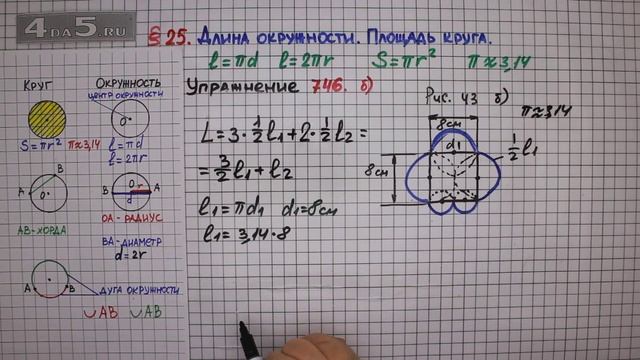 4DA5.RU
§ 25. Длина окружности. Площадь круга.
l = πd l = 2πr S = πr² π ≈ 3,14
Упражнение 746. б)
Круг
S = πr² π ≈ 3,14
Окружность
центр окружности
O
l = πd
l = 2πr
A B O
AB - хорда
B O r A
d
OA - радиус
BA - диаметр
d = 2r
A B
дуга окружности
∪AB ∪AB
L = 3 · ½ l₁ + 2 · ½ l₂ =
= 3/2 l₁ + l₂
l₁ = πd₁ d₁ = 8см
l₁ = 3,14 · 8
Рис. 43 б)
π ≈ 3,14
8см
d₁
½ l₁
8см